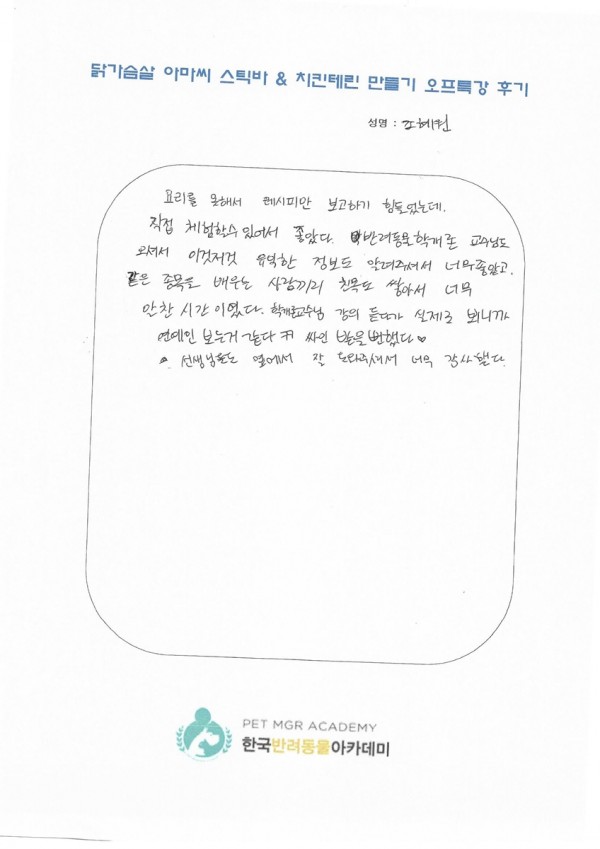 닭가슴살 아마씨 스틱바 & 치킨테린 만들기 오프특강 후기
성명 : 조혜원
요리를 못해서 레시피만 보고하기 힘들었는데.
직접 체험할수 있어서 좋았다. 반려동물학개론 교수님도
오셔서 이것저것 유익한 정보도 알려주셔서 너무좋았고.
같은 종목을 배우는 사람끼리 친목도 쌓아서 너무
알찬 시간이였다. 학개론교수님 강의 듣다가 실제로 뵈니까
연예인 보는거 같다 ㅋㅋ 싸인 받을뻔했다 ♥
선생님들도 옆에서 잘 도와주셔서 너무 감사했다.
PET MGR ACADEMY
한국반려동물아카데미